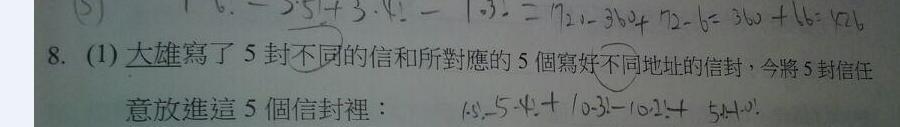 (5) 1·6! - 3·5! + 3·4! - 1·3! = 720 - 360 + 72 - 6 = 360 + 66 = 426
8. (1) 大雄寫了 5 封不同的信和所對應的 5 個寫好不同地址的信封，今將 5 封信任
意放進這 5 個信封裡： 1·5! - 5·4! + 10·3! - 10·2! + 5·1! - 1·0!